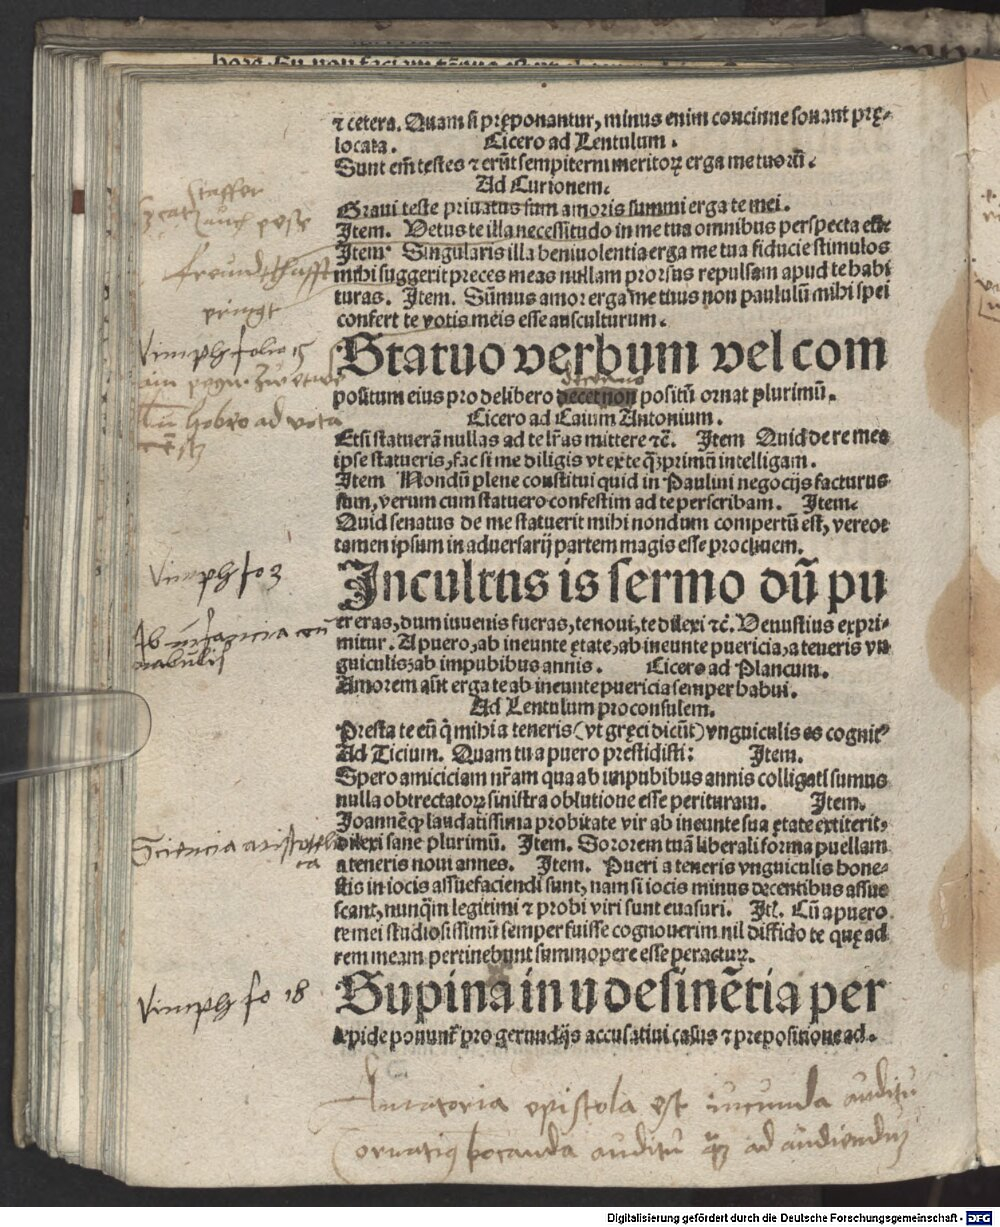 ⁊ cetera. Quam si pręponantur, minus enim concinne sonant prę-
locata. Cicero ad Lentulum.
Sunt em̄ testes ⁊ erūt sempiterni meritoꝝ erga me tuorū.
Ad Curionem.
Graui teste priuatus sum amoris summi erga te mei.
Item. Vetus te illa necessitudo in me tua omnibus perspecta esse
Item Singularis illa beniuolentia erga me tua fiducie stimulos
mihi suggerit preces meas nullam prorsus repulsam apud te habi
turas. Item. Sūmus amor erga me tuus non paululū mihi spei
confert te votis meis esse ausculturum.
Statuo verbum vel com
positum eius pro delibero decet non positū ornat plurimū.
Cicero ad Caium Antonium.
Etsi statuerā nullas ad te lr̄as mittere ⁊c̄. Item Quid de re mea
ipse statueris, fac si me diligis vt ex te q̄ȝprimū intelligam.
Item Nondū plene constitui quid in Paulini negocijs facturus
sum, verum cum statuero confestim ad te perscribam. Item.
Quid senatus de me statuerit mihi nondum compertū est, vereor
tamen ipsum in aduersarij partem magis esse procliuem.
Incultus is sermo dū pu
er eras, dum iuuenis fueras, te noui, te dilexi ⁊c̄. Venustius expri-
mitur. A puero, ab ineunte ętate, ab ineunte puericia, a teneris vn
guiculis, ab impubibus annis. Cicero ad Plancum.
Amorem aūt erga te ab ineunte puericia semper habui.
Ad Lentulum proconsulem.
Presta te eū q̇ mihi a teneris (vt gręci dicūt) vnguiculis es cognitꝰ
Ad Ticium. Quam tu a puero prestidisti: Item.
Spero amiciciam nr̄am qua ab impubibus annis colligati sumus
nulla obtrectatoꝝ sinistra oblutione esse perituram. Item.
Joannēqȝ laudatissima probitate vir ab ineunte sua ętate extiterit,
dilexi sane plurimū. Item. Sororem tuā liberali forma puellam
a teneris noui annes. Item. Pueri a teneris vnguiculis hone-
stis in iocis assuefaciendi sunt, nam si iocis minus decentibus assue
scant, nunq̄m legitimi ⁊ probi viri sunt euasuri. Itē. Cū a puero
te mei studiosissimū semper fuisse cognouerim nil diffido te quę ad
rem meam pertinebunt summopere esse peracturꝝ.
Supina in u desinētia per
lepide ponunt̄ pro gerundijs accusatiui casus ⁊ prepositione ad.
freundtschafft
Vimph folio 15
Vimph fo 3
Ab infancia
Sciencia aristotelica
Vimph fo 18
Amatoria epistola est iucunda auditu
ornatiꝰ auditū ad audiendū
Digitalisierung gefördert durch die Deutsche Forschungsgemeinschaft - DFG